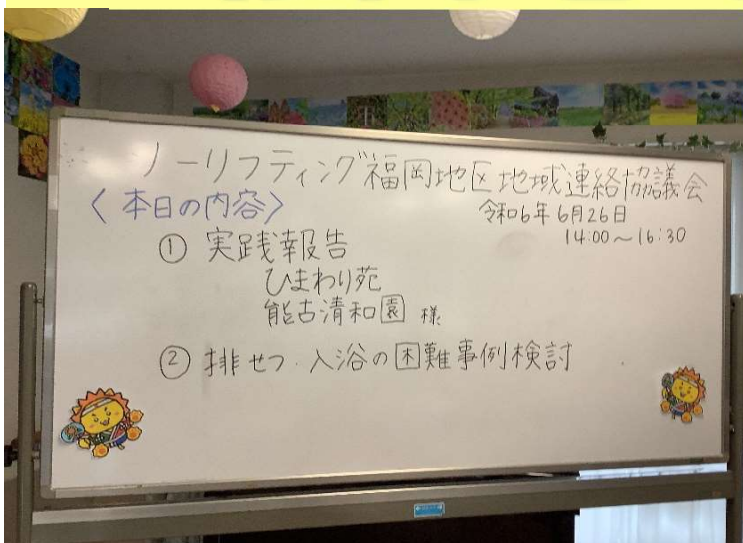 ノーリフティング福岡地区地域連絡協議会
〈本日の内容〉
令和6年6月26日
14:00～16:30
① 実践報告
ひまわり苑
能古清和園 様
② 排せつ・入浴の困難事例検討